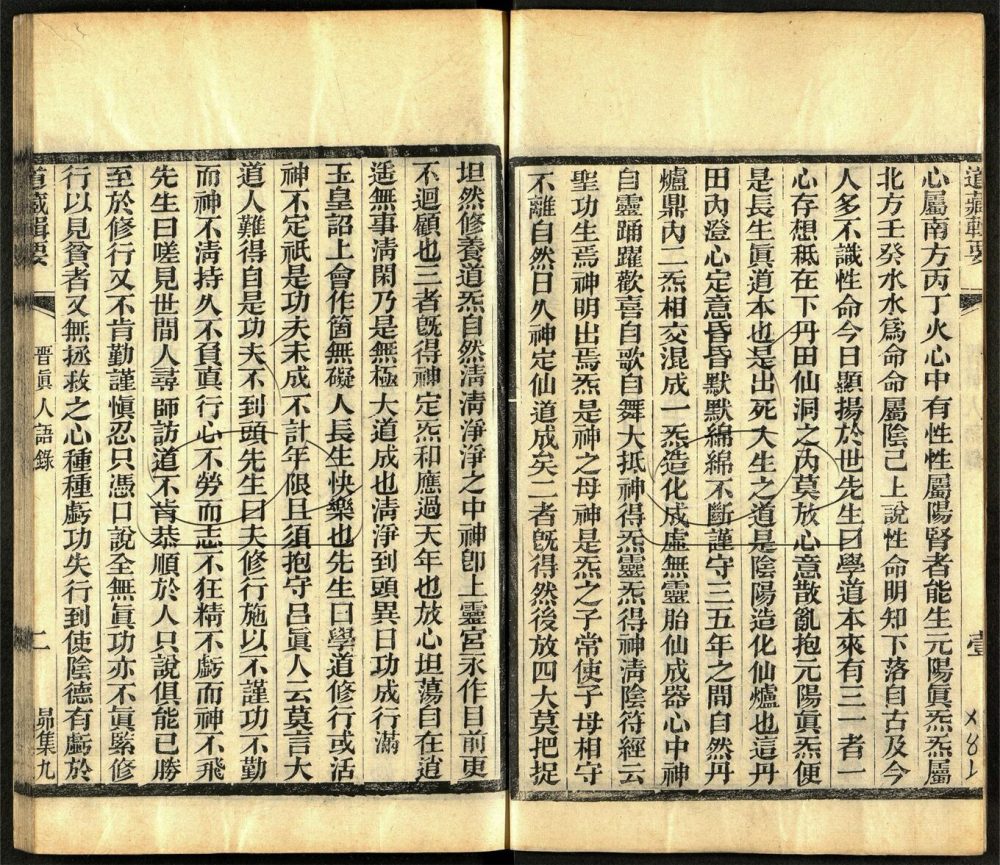 道藏輯要
壹
心屬南方丙丁火心中有性性屬陽賢者能生元陽眞炁炁屬
北方壬癸水水爲命命屬陰己上說性命明知下落自古及今
人多不識性命今日顯揚於世先生曰學道本來有三一者一
心存想秪在下丹田仙洞之內莫放心意散亂抱元陽眞炁便
是長生眞道本也是出死入生之道是陰陽造化仙爐也這丹
田內澄心定意昏昏默默綿綿不斷謹守三五年之間自然丹
爐鼎內二炁相交混成一炁造化成虛無靈胎仙成器心中神
自靈踊躍歡喜自歌自舞大抵神得炁靈炁得神淸陰符經云
聖功生焉神明出焉炁是神之母神是炁之子常使子母相守
不離自然日久神定仙道成矣二者旣得然後放四大莫把捉
坦然修養道炁自然淸淸淨淨之中神卽上靈宮永作目前更
不迴顧也三者旣得神定炁和應過天年也放心坦蕩自在逍
遙無事淸閑乃是無極大道成也淸淨到頭異日功成行滿
玉皇詔上會作箇無礙人長生快樂也先生曰學道修行或活
神不定祇是功夫未成不計年限且須抱守呂眞人云莫言大
道人難得自是功夫不到頭先生曰夫修行施以不謹功不勤
而神不淸持久不負眞行心不勞而志不狂精不虧而神不飛
先生曰嗟見世間人尋師訪道不肯恭順於人只說俱能已勝
至於修行又不肯勤謹愼忍只憑口說全無眞功亦不眞緊修
行以見貧者又無拯救之心種種虧功失行到使陰德有虧於
道藏輯要
晋眞人語錄
二
昴集九